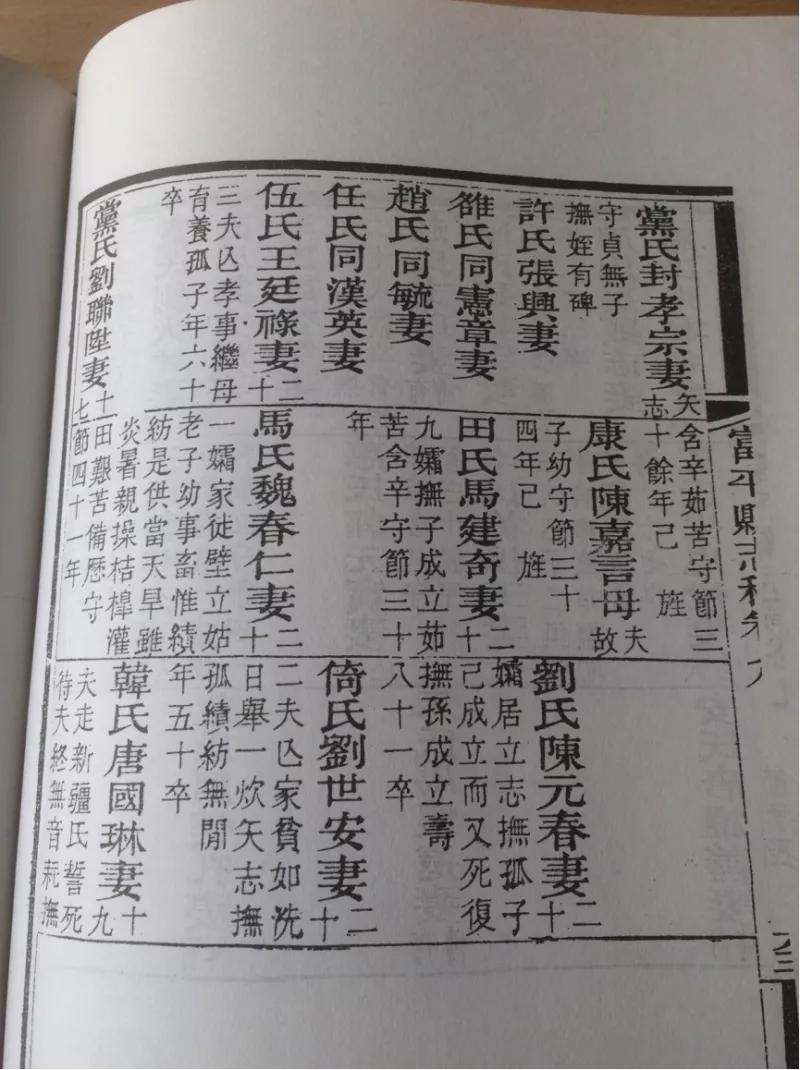 富平縣志稿卷
黨氏封孝宗妻矢志
守貞無子
撫姪有碑
許氏張興妻
雒氏同憲章妻
趙氏同毓妻
任氏同漢英妻
伍氏王廷祿妻二十
三夫亾孝事繼母
育養孤子年六十
卒
黨氏劉聯陞妻十七
含辛茹苦守節三
十餘年己 旌
康氏陳嘉言母夫故
子幼守節三十
四年己 旌
田氏馬建奇妻二十
九孀撫子成立茹
苦含辛守節三十
年
馬氏魏春仁妻二十
一孀家徒壁立姑
老子幼事畜惟績
紡是供當天旱雖
炎暑親操桔橰灌
田艱苦備歷守
節四十一年
劉氏陳元春妻二十
孀居立志撫孤子
己成立而又死復
撫孫成立壽
八十一卒
倚氏劉世安妻二十
二夫亾家貧如洗
日舉一炊矢志撫
孤績紡無閒
年五十卒
韓氏唐國琳妻十九
夫走新疆氏誓死
待夫終無音耗撫